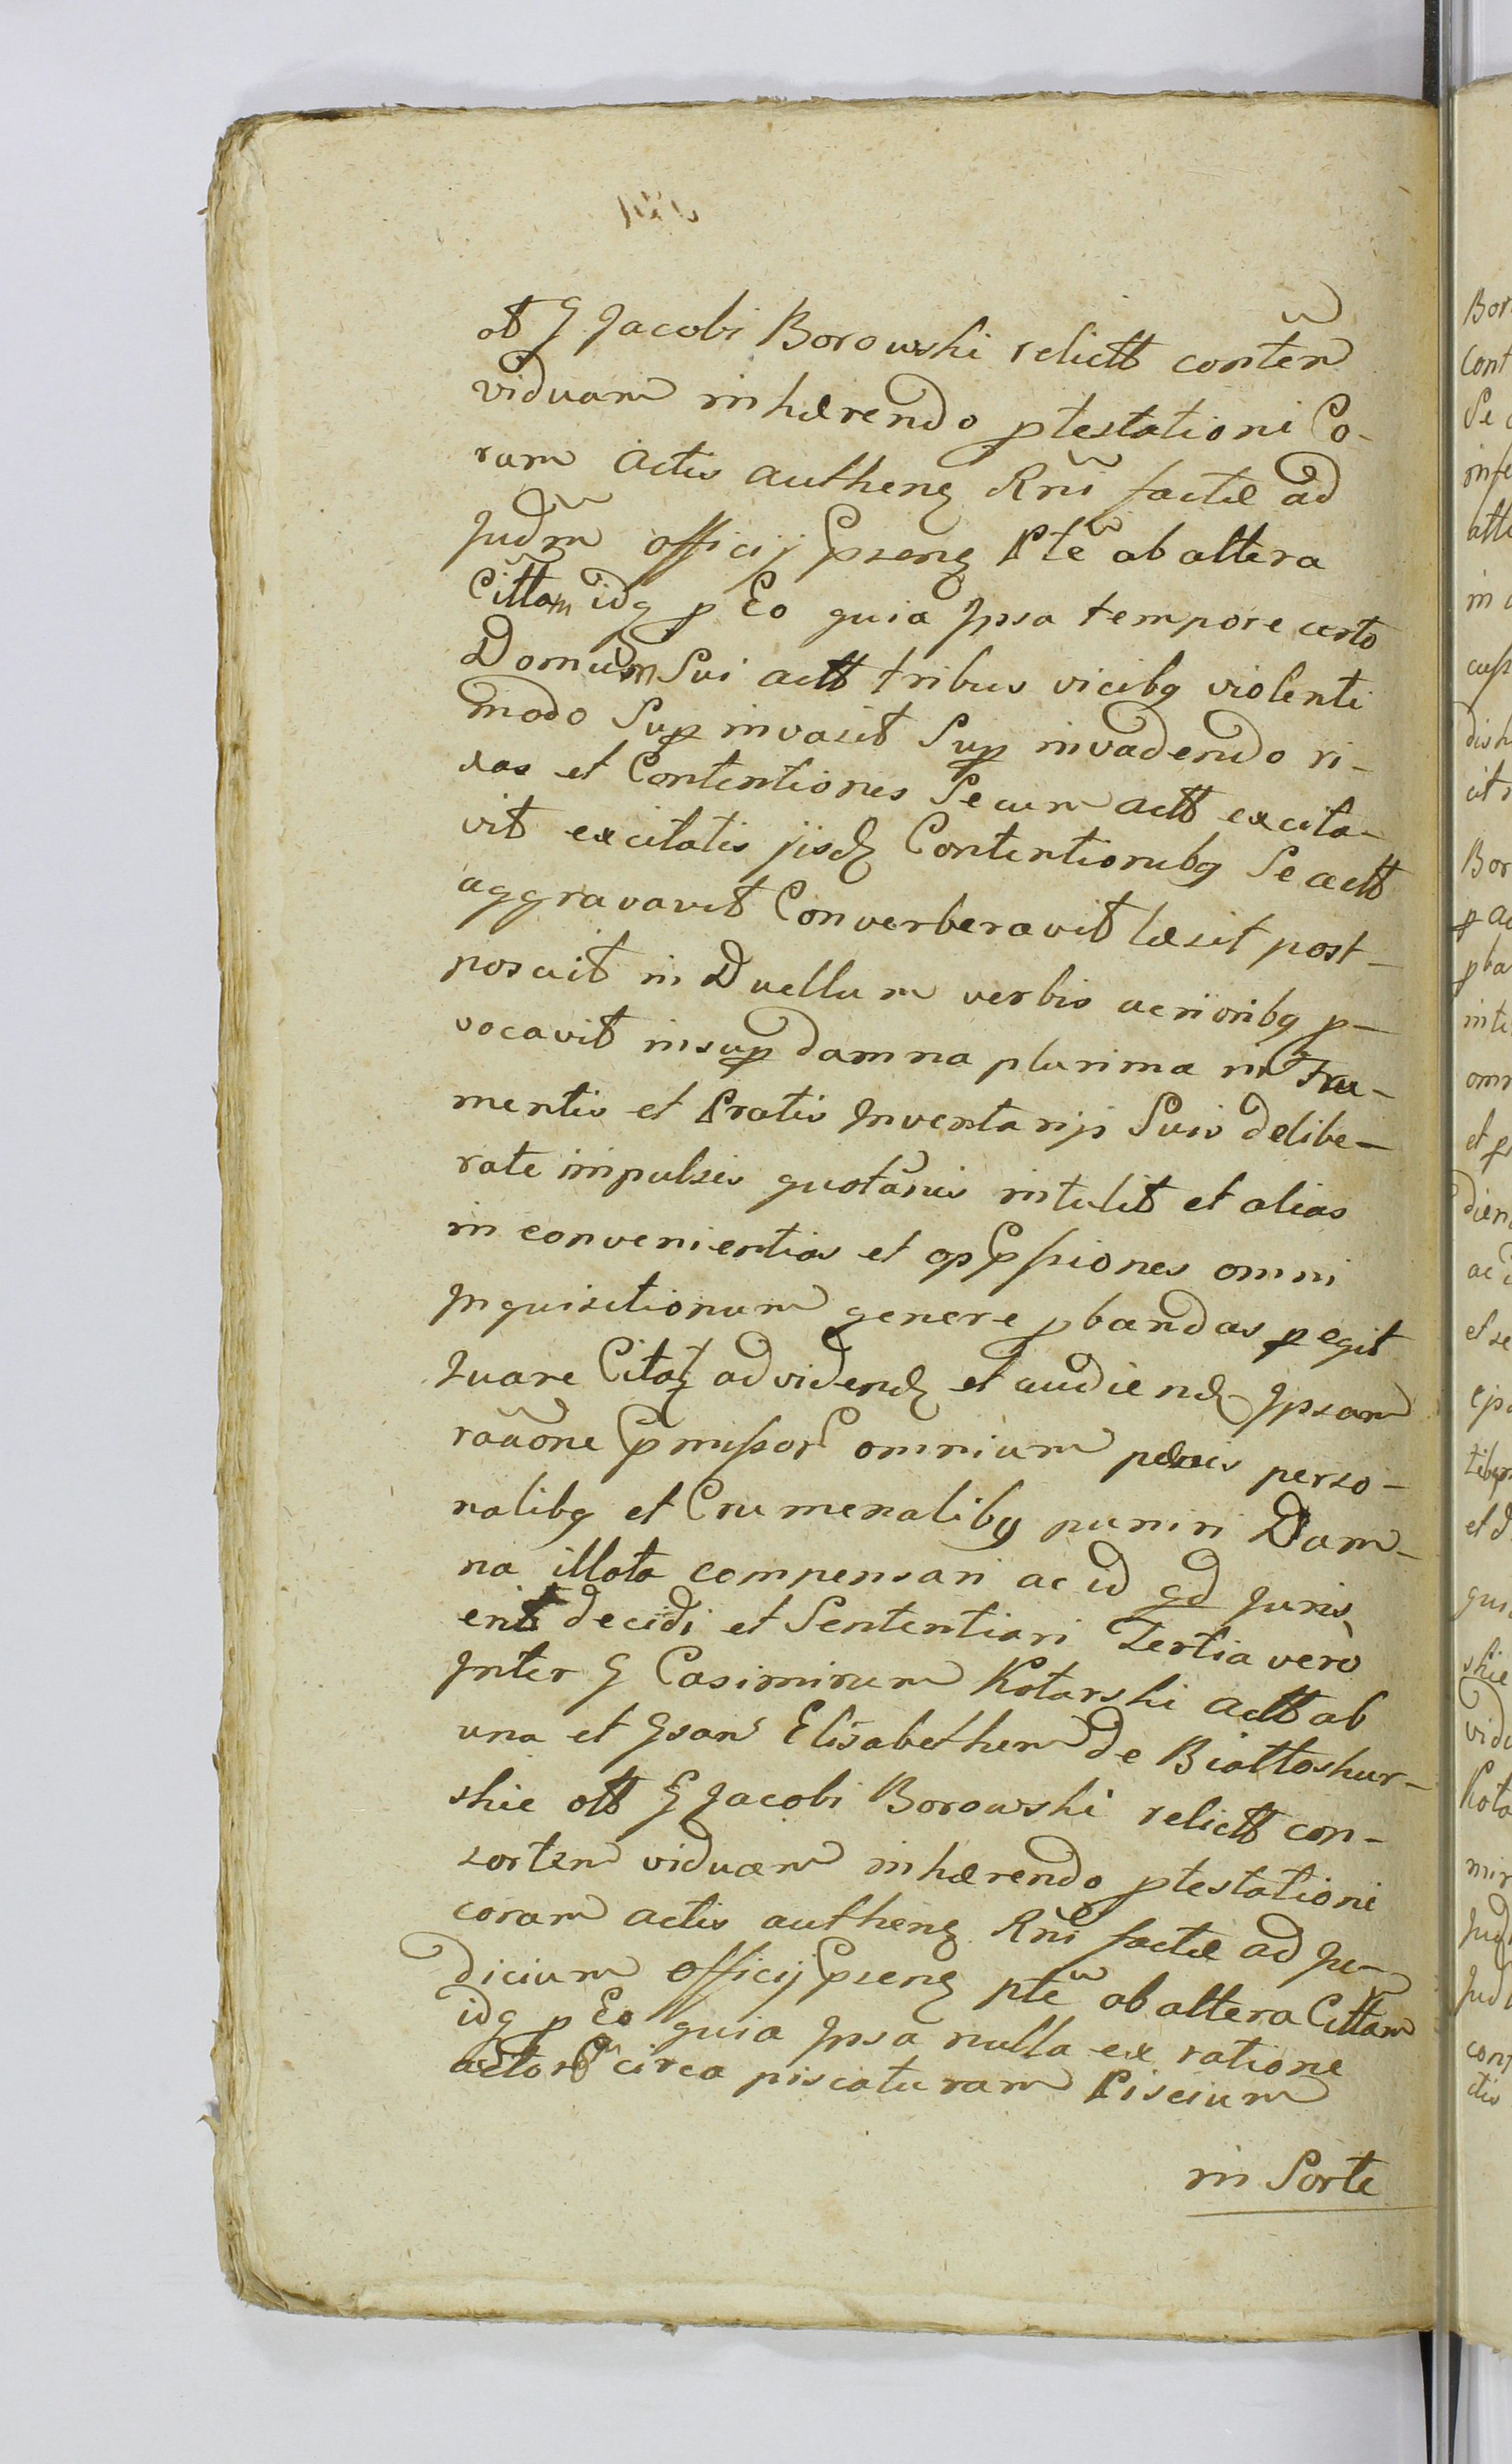 ot G Jacobi Borowski relictt conten̄
viduam inhærendo ptestationi Co-
ram actis autheng Rn̄i factæ ad
Judm̄ officij Pseng Pte ab altera
Cittam idq p Eo quia Ipsa tempore certo
Domum Sui actt tribus vicibq violenti
modo Sup invasit Sup invadendo ri-
xas et Contentiones Secum actt excita-
vit excitatis ijsd Contentionibq Se actt
aggravavit Converberavit læsit post-
posuit in Duellum verbis acrioribq p-
vocavit insup damna plurima in Fru-
mentis et Pratis Inventarijs Suis delibe-
rate impulsis quotañis intulit et alias
in convenientias et opPssiones omni
Inquisitionum genere pbandas pegit
quare Citat ad vidend et audiend Ipsam
raōne Pmissor omnium pænis perso-
nalibq et Crumenalibq puniri Dam-
na illata compensari ac id qd Juris
erit decidi et Sententiari Tertia verò
Inter G Casimirum Kotarski actt ab
una et Gsam Elisabetham de Biattoskur-
skie ott G Jacobi Borowski relictt con-
sortem viduam inhærendo ptestationi
coram actis autheng Rn̄i factæ ad Ju-
dicium officij Pseng pte ab altera Cittam
idq p Eo quia Ipsa nulla ex ratione
actor circa piscaturam Piscium
in Sorte